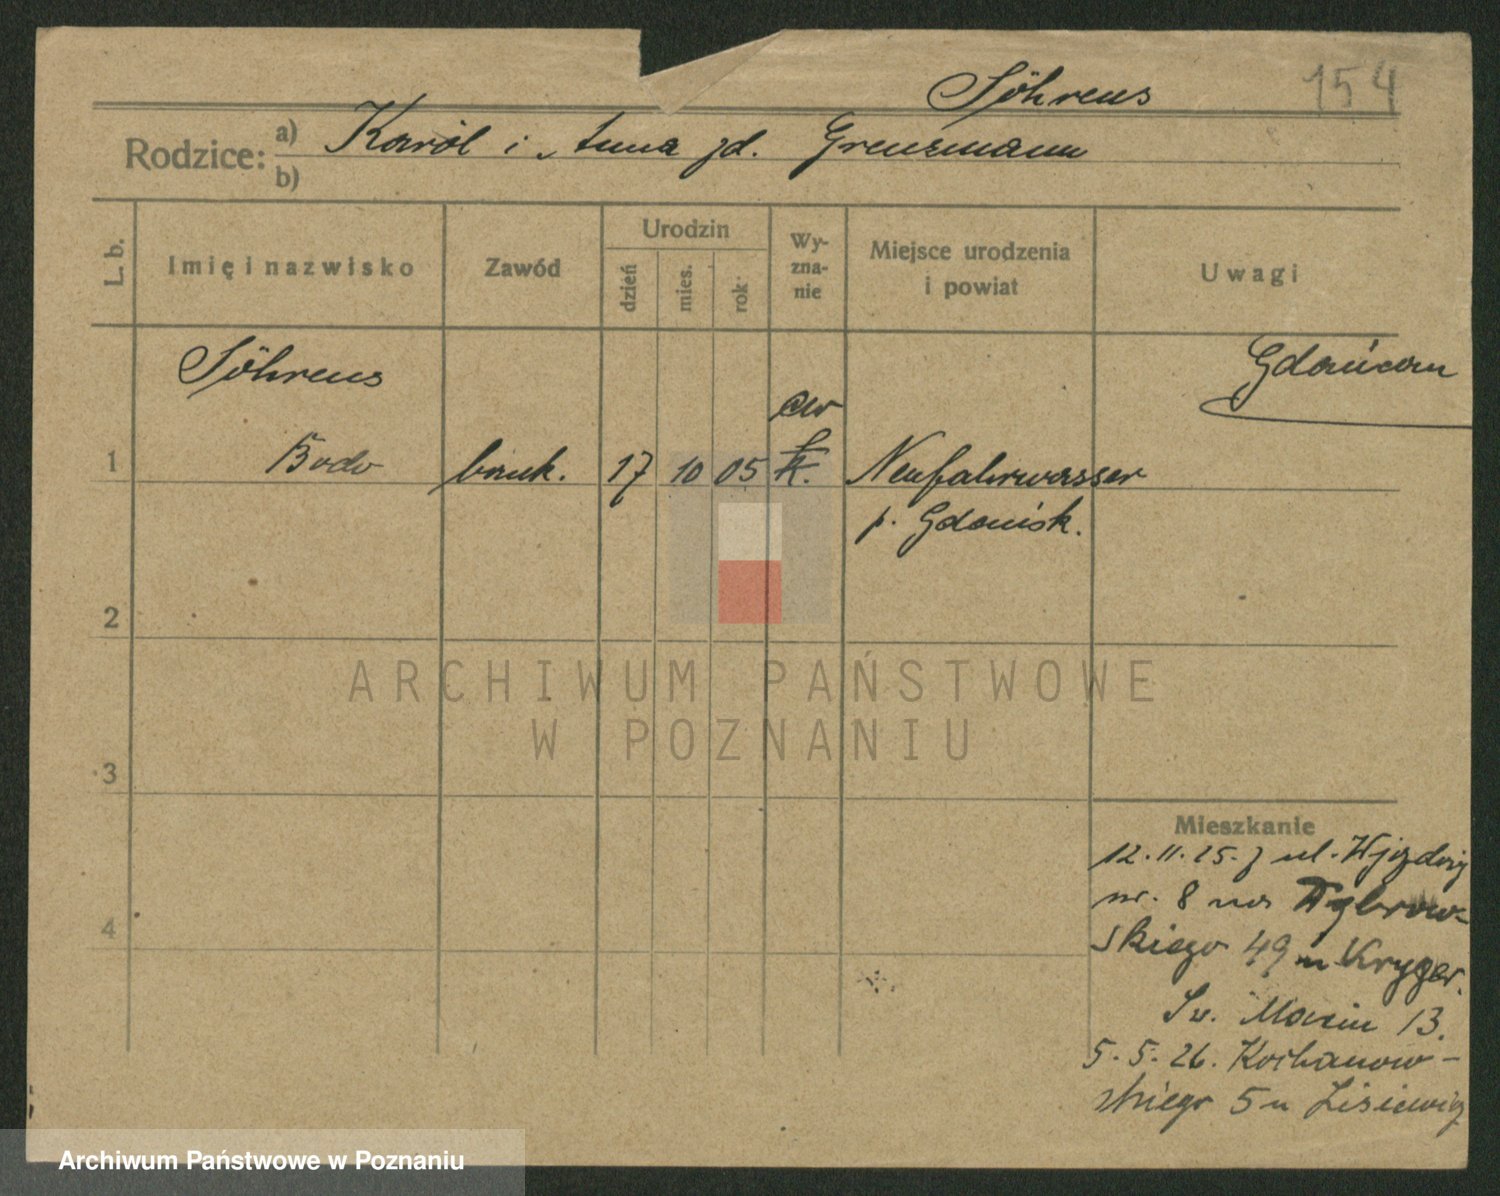 Söhrens 154
Rodzice: a) Karól i Anna zd. Grenzmann
b)
L. b. Imię i nazwisko Zawód Urodzin dzień mies. rok Wy-
zna-
nie Miejsce urodzenia
i powiat Uwagi
Söhrens Gdańszczan
ew
1 Bodo bank. 17 10 05 k. Neufahrwasser
p. Gdańsk.
2
ARCHIWUM PAŃSTWOWE
W POZNANIU
3
Mieszkanie
12.11.25. z ul. Wjazdowej
nr. 8 na Dąbrow-
4 skiego 49 u Kryger.
Św. Marcin 13.
5.5.26. Kochanow-
skiego 5 u Lisiewicz
Archiwum Państwowe w Poznaniu